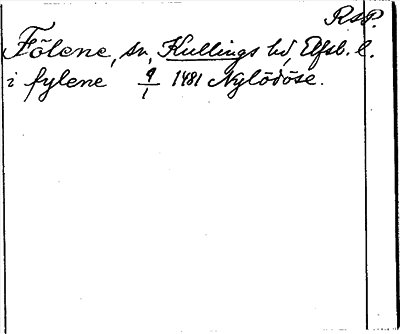 RsP.
Fölene, sn, Kullings hd, Elfsb. l.
i fylene 9/1 1481 Nylödöse.